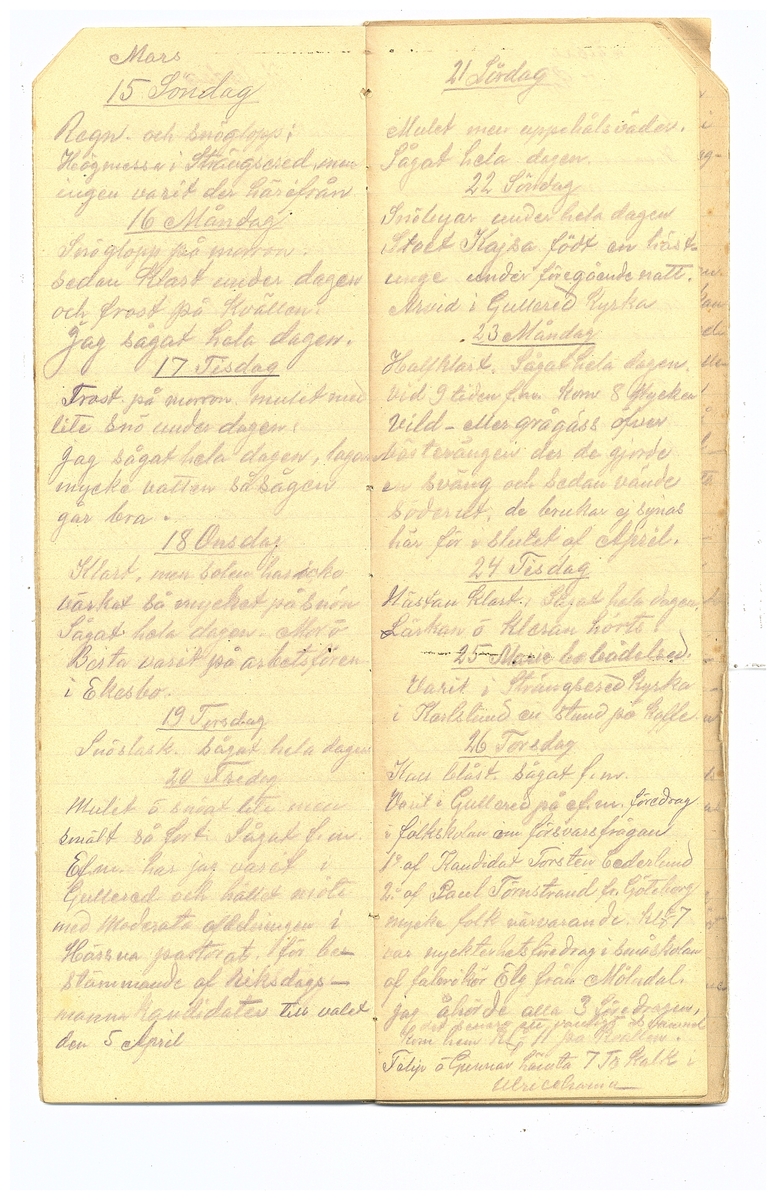 Mars
15 Söndag
Regn. och snöglopp;
Högmessa i Strängsered, men
ingen varit der härifrån
16 Måndag
Snöglopp på morron.
sedan klart under dagen
och frost på kvällen.
Jag sågat hela dagen.
17 Tisdag
Frost på morron mulet med
lite snö under dagen.
Jag sågat hela dagen, lagom
mycke vatten så sågen
går bra.
18 Onsdag
Klart, men solen har icke
värkat så mycket på snön
Sågat hela dagen. Mor ö
Berta varit på arbetsfören
i Ekesbo.
19 Torsdag
Snöslask. Sågat hela dagen
20 Fredag
Mulet ö snögt lite men
smält så fort. Sågat f.m.
Ef.m. har jag varit i
Gullered och hållet möte
med Moderata afdelningen i
Hössna pastorat, för be-
stämmande af Riksdags-
manna kandidater till valet
den 5 April
21 Lördag
Mulet men uppehålsväder.
Sågat hela dagen.
22 Söndag
Snöbyar under hela dagen
Stoet Kajsa födt en häst-
unge under föregående natt.
Arvid i Gullered Kyrka
23 Måndag
Halfklart. Sågat hela dagen.
vid 9 tiden f.m. kom 8 stycken
Vild- eller grågäss öfver
Västerängen der de gjorde
en sväng och sedan vände
söderut, de brukar ej synas
här för i slutet af April.
24 Tisdag
Nästan klart. Sågat hela dagen,
Lärkan ö hörts.
25 Marie bebådelsed.
Varit i Strängsered Kyrka
i Karlslund en stund på kaffe
26 Torsdag
blåst. Sågat f.m.
Varit i Gullered på ef.m. föredrag
i folkskolan om försvarsfrågan
1º af Kandidat Torsten Cederlund
2º af Paul Törnstrand fr. Göteborg
mycke folk närvarande. Kl 7
var nykterhetsföredrag i småskolan
af fabrikör Elg från Mölndal.
Jag åhörde alla 3 föredragen,
det senare
Kom hem Kl 11 på kvällen.
Filip ö Gunnar hämta 7 Tr Kalk i
Ulricehamn